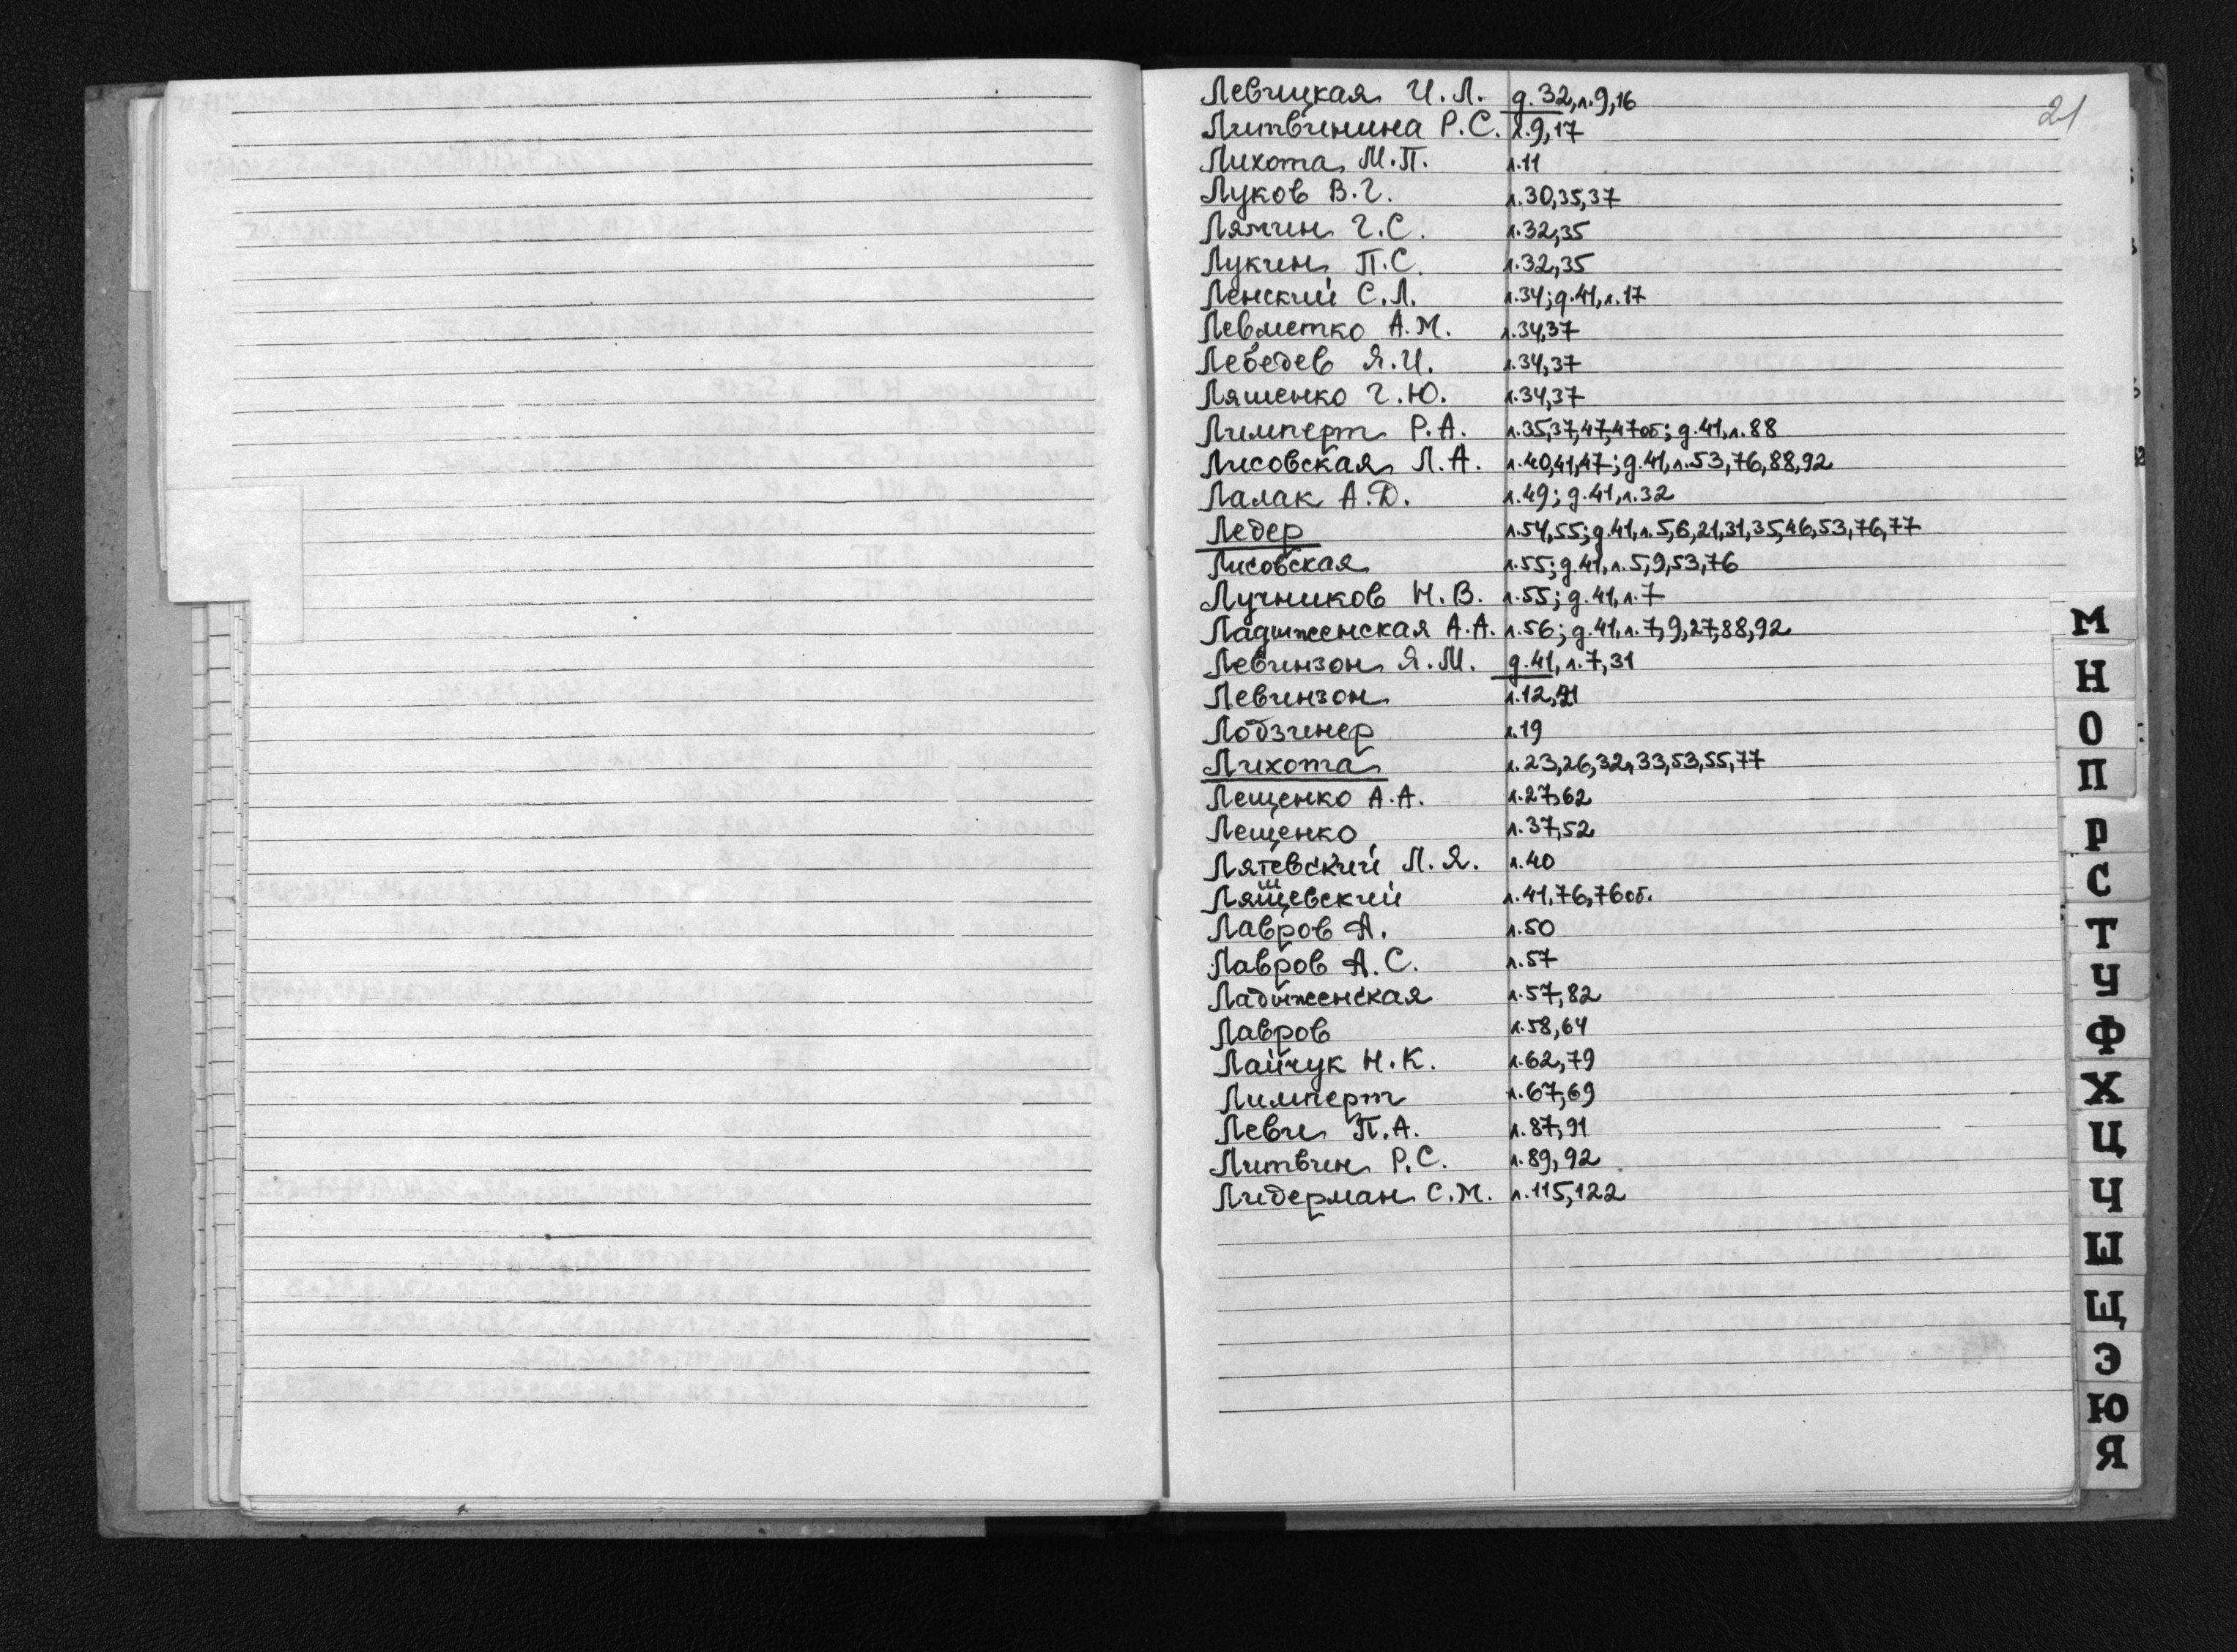 21
Левицкая И.Л. д.32,л.9,16
Литвинина Р.С. л.9,17
Лихота М.П. л.11
Луков В.Г. л.30,35,37
Лямин Г.С. л.32,35
Лукин П.С. л.32,35
Ленский С.Л. л.34;д.41,л.17
Левметко А.М. л.34,37
Лебедев Я.И. л.34,37
Ляшенко Г.Ю. л.34,37
Лимперт Р.А. л.35,37,47,47об; д.41,л.88
Лисовская Л.А. л.40,41,47;д.41,л.53,76,88,92
Лалак А.Д. л.49; д.41,л.32
Ледер л.54,55;д.41,л.5,6,21,31,35,46,53,76,77
Лисовская л.55;д.41,л.5,9,53,76
Лучников Н.В. л.55; д.41,л.7
Ладыженская А.А. л.56; д.41,л.7,9,27,88,92
Левинзон Я.М. д.41,л.7,31
Левинзон л.12,21
Лобзинер л.19
Лихота л.23,26,32,33,53,55,77
Лещенко А.А. л.27,62
Лещенко л.37,52
Лятевский Л.Я. л.40
Лящевский л.41,76,76об.
Лавров А. л.50
Лавров А.С. л.57
Ладыженская л.57,82
Лавров л.58,64
Лайчук Н.К. л.62,79
Лимперт л.67,69
Леви П.А. л.87,91
Литвин Р.С. л.89,92
Лидерман С.М. л.115,122
М
Н
О
П
Р
С
Т
У
Ф
Х
Ц
Ч
Ш
Щ
Э
Ю
Я